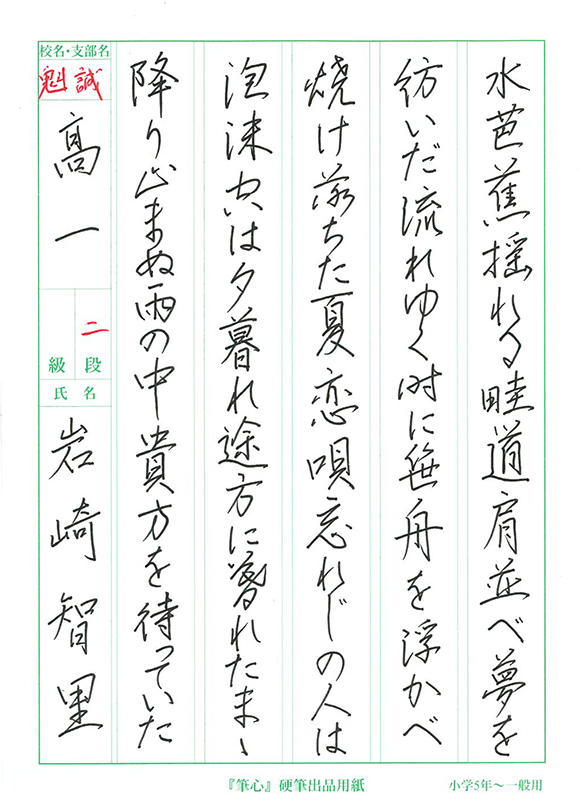 水芭蕉揺れる畦道肩並べ夢を
紡いだ流れゆく時に笹舟を浮かべ
焼け落ちた夏恋唄忘れじの人は
泡沫空は夕暮れ途方に暮れたまゝ
降り止まぬ雨の中貴方を待っていた
校名・支部名
魁誠
高一
二
段
級
氏名
岩崎智里
『筆心』硬筆出品用紙
小学5年〜一般用